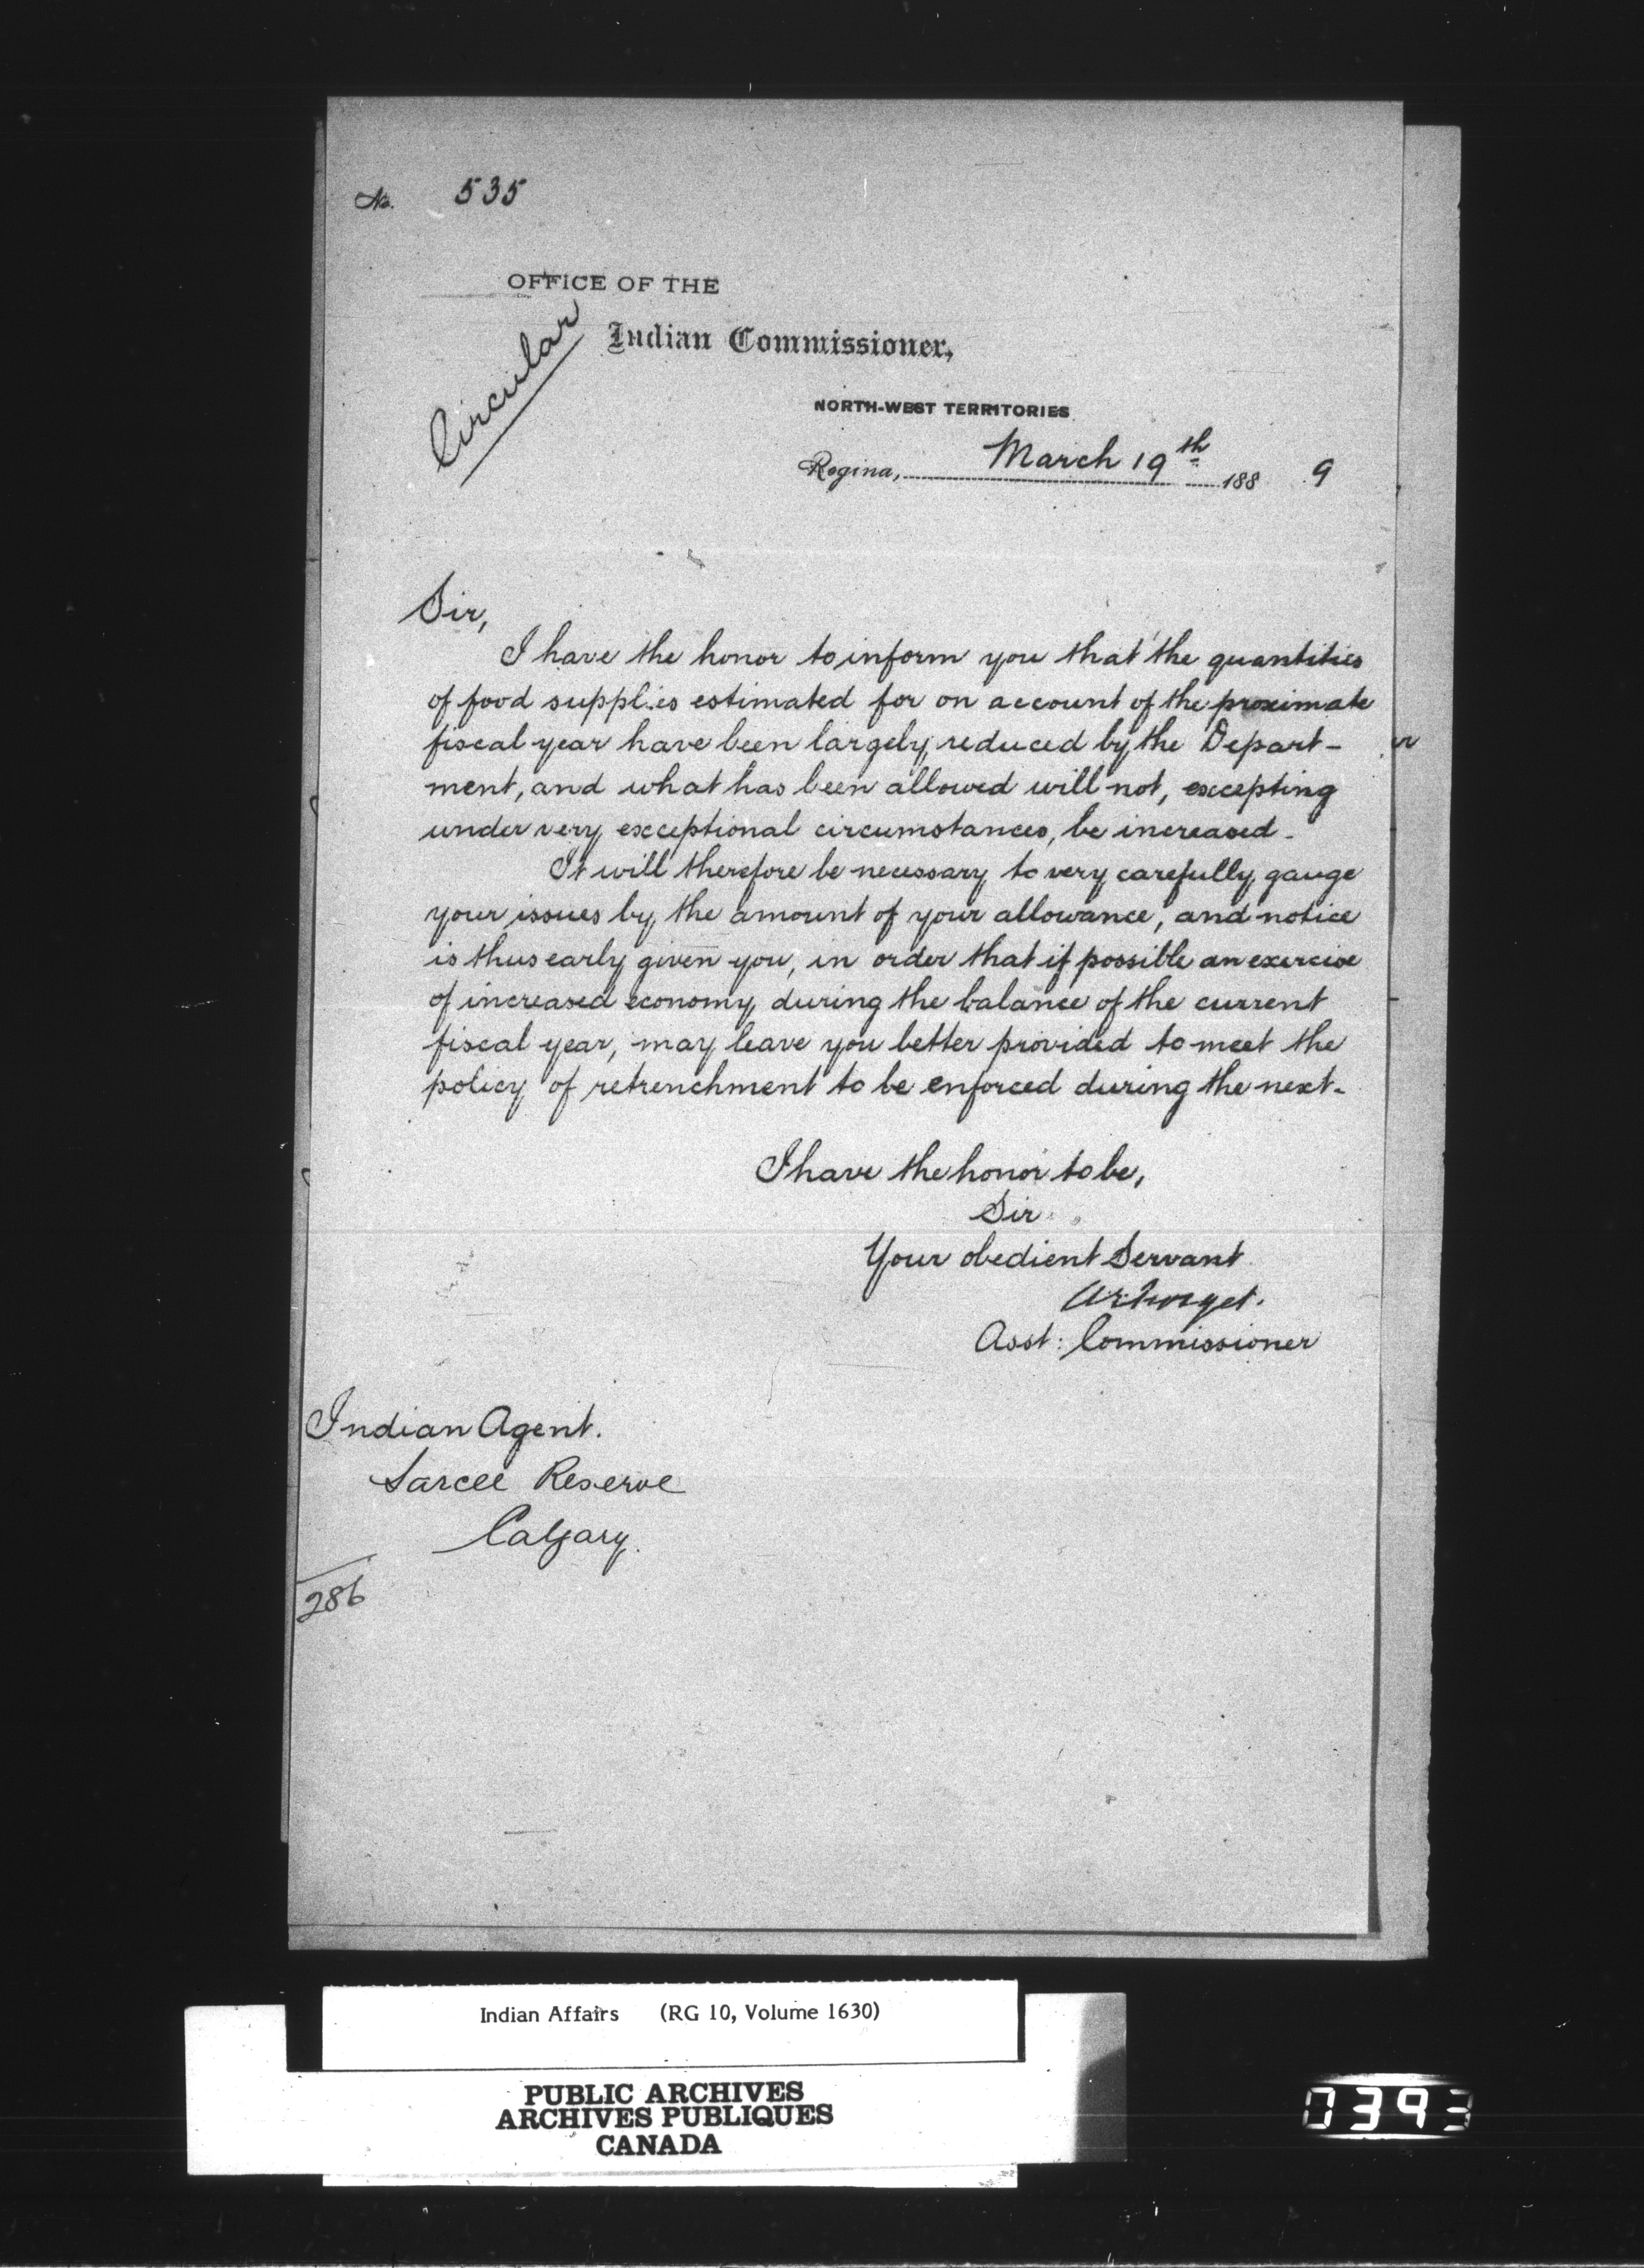 No. 535
OFFICE OF THE
Indian Commissioner,
Circular
NORTH-WEST TERRITORIES
Regina, March 19th 1889
Sir,
I have the honor to inform you that the quantities
of food supplies estimated for on account of the proximate
fiscal year have been largely reduced by the Depart-
ment, and what has been allowed will not, excepting
under very exceptional circumstances, be increased.
It will therefore be necessary to very carefully gauge
your issues by the amount of your allowance, and notice
is thus early given you, in order that if possible an exercise
of increased economy during the balance of the current
fiscal year, may leave you better provided to meet the
policy of retrenchment to be enforced during the next.
I have the honor to be,
Sir
Your obedient Servant
A E Forget.
Asst: Commissioner
Indian Agent.
Sarcee Reserve
Calgary.
286
Indian Affairs (RG 10, Volume 1630)
PUBLIC ARCHIVES
ARCHIVES PUBLIQUES
CANADA
0393